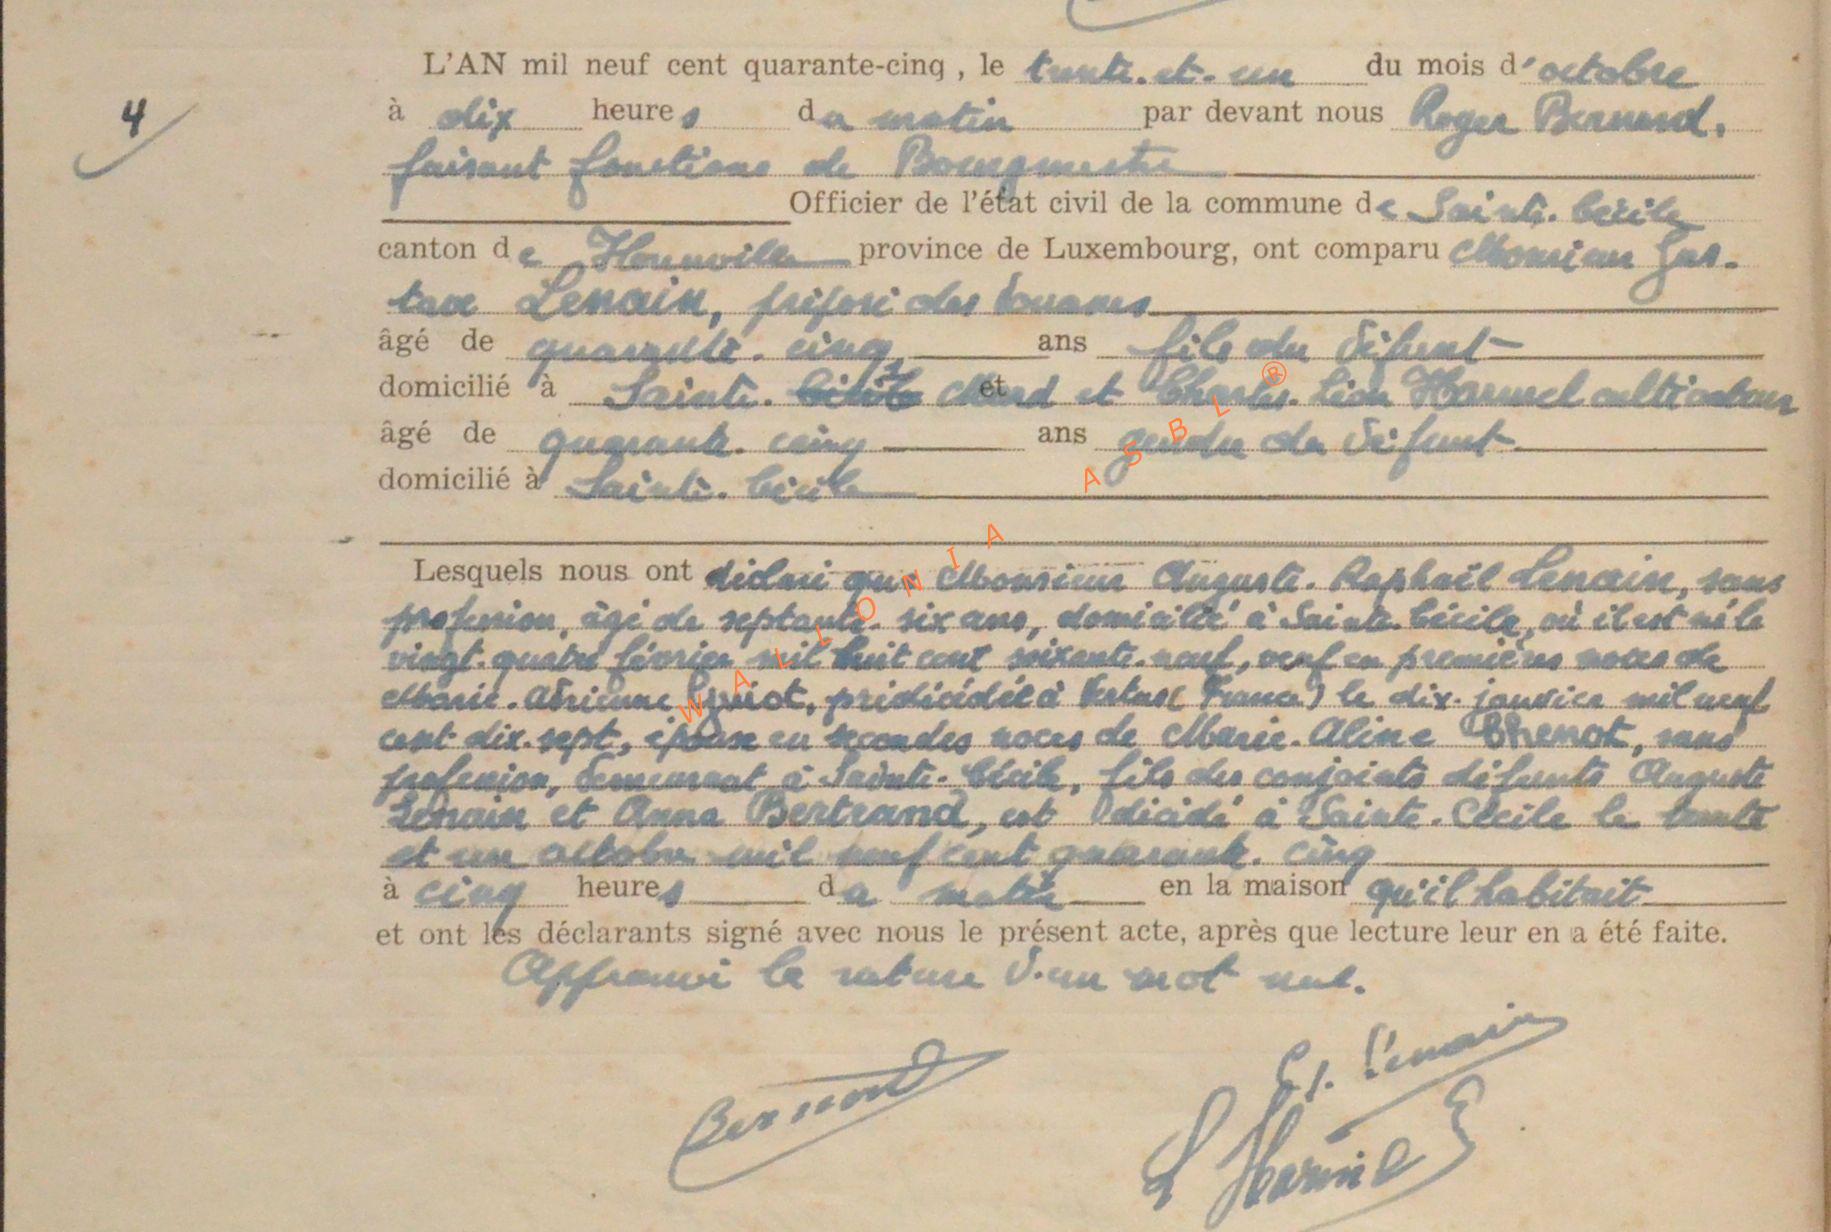 L'AN mil neuf cent quarante-cinq , le trente-et-un du mois d'octobre
4
à dix heures du matin par devant nous Roger Bernard,
faisant fonctions de Bourgmestre
Officier de l'état civil de la commune de Sainte-Cécile
canton de Florenville province de Luxembourg, ont comparu Monsieur Gus-
tave Lenain, préposé des douanes
âgé de quarante-cinq ans fils du défunt
domicilié à Sainte- Cécile Marie et et Charles-Léon Hannel cultivateur
âgé de quarante-cinq ans gendre du défunt
domicilié à Sainte-Cécile
Lesquels nous ont déclaré que Monsieur Auguste-Raphaël Lenain, sans
profession, âgé de septante-six ans, domicilié à Sainte-Cécile, où il est né le
vingt-quatre février mil huit cent soixante-neuf, veuf en premières noces de
Marie-Adrienne Guiot, prédécédée à Vertus (France) le dix janvier mil neuf
cent dix-sept, époux en secondes noces de Marie-Aline Thenot, sans
profession, demeurant à Sainte-Cécile, fils des conjoints défunts Auguste
Lenain et Anna Bertrand, est décédé à Sainte-Cécile le trente
et un octobre mil neuf cent quarante-cinq
à cinq heures du matin en la maison qu'il habitait
et ont les déclarants signé avec nous le présent acte, après que lecture leur en a été faite.
Approuvé la rature d'un mot nul.
Bernard
G. Lenain
L Hannel
WALLONIA ASBL ®